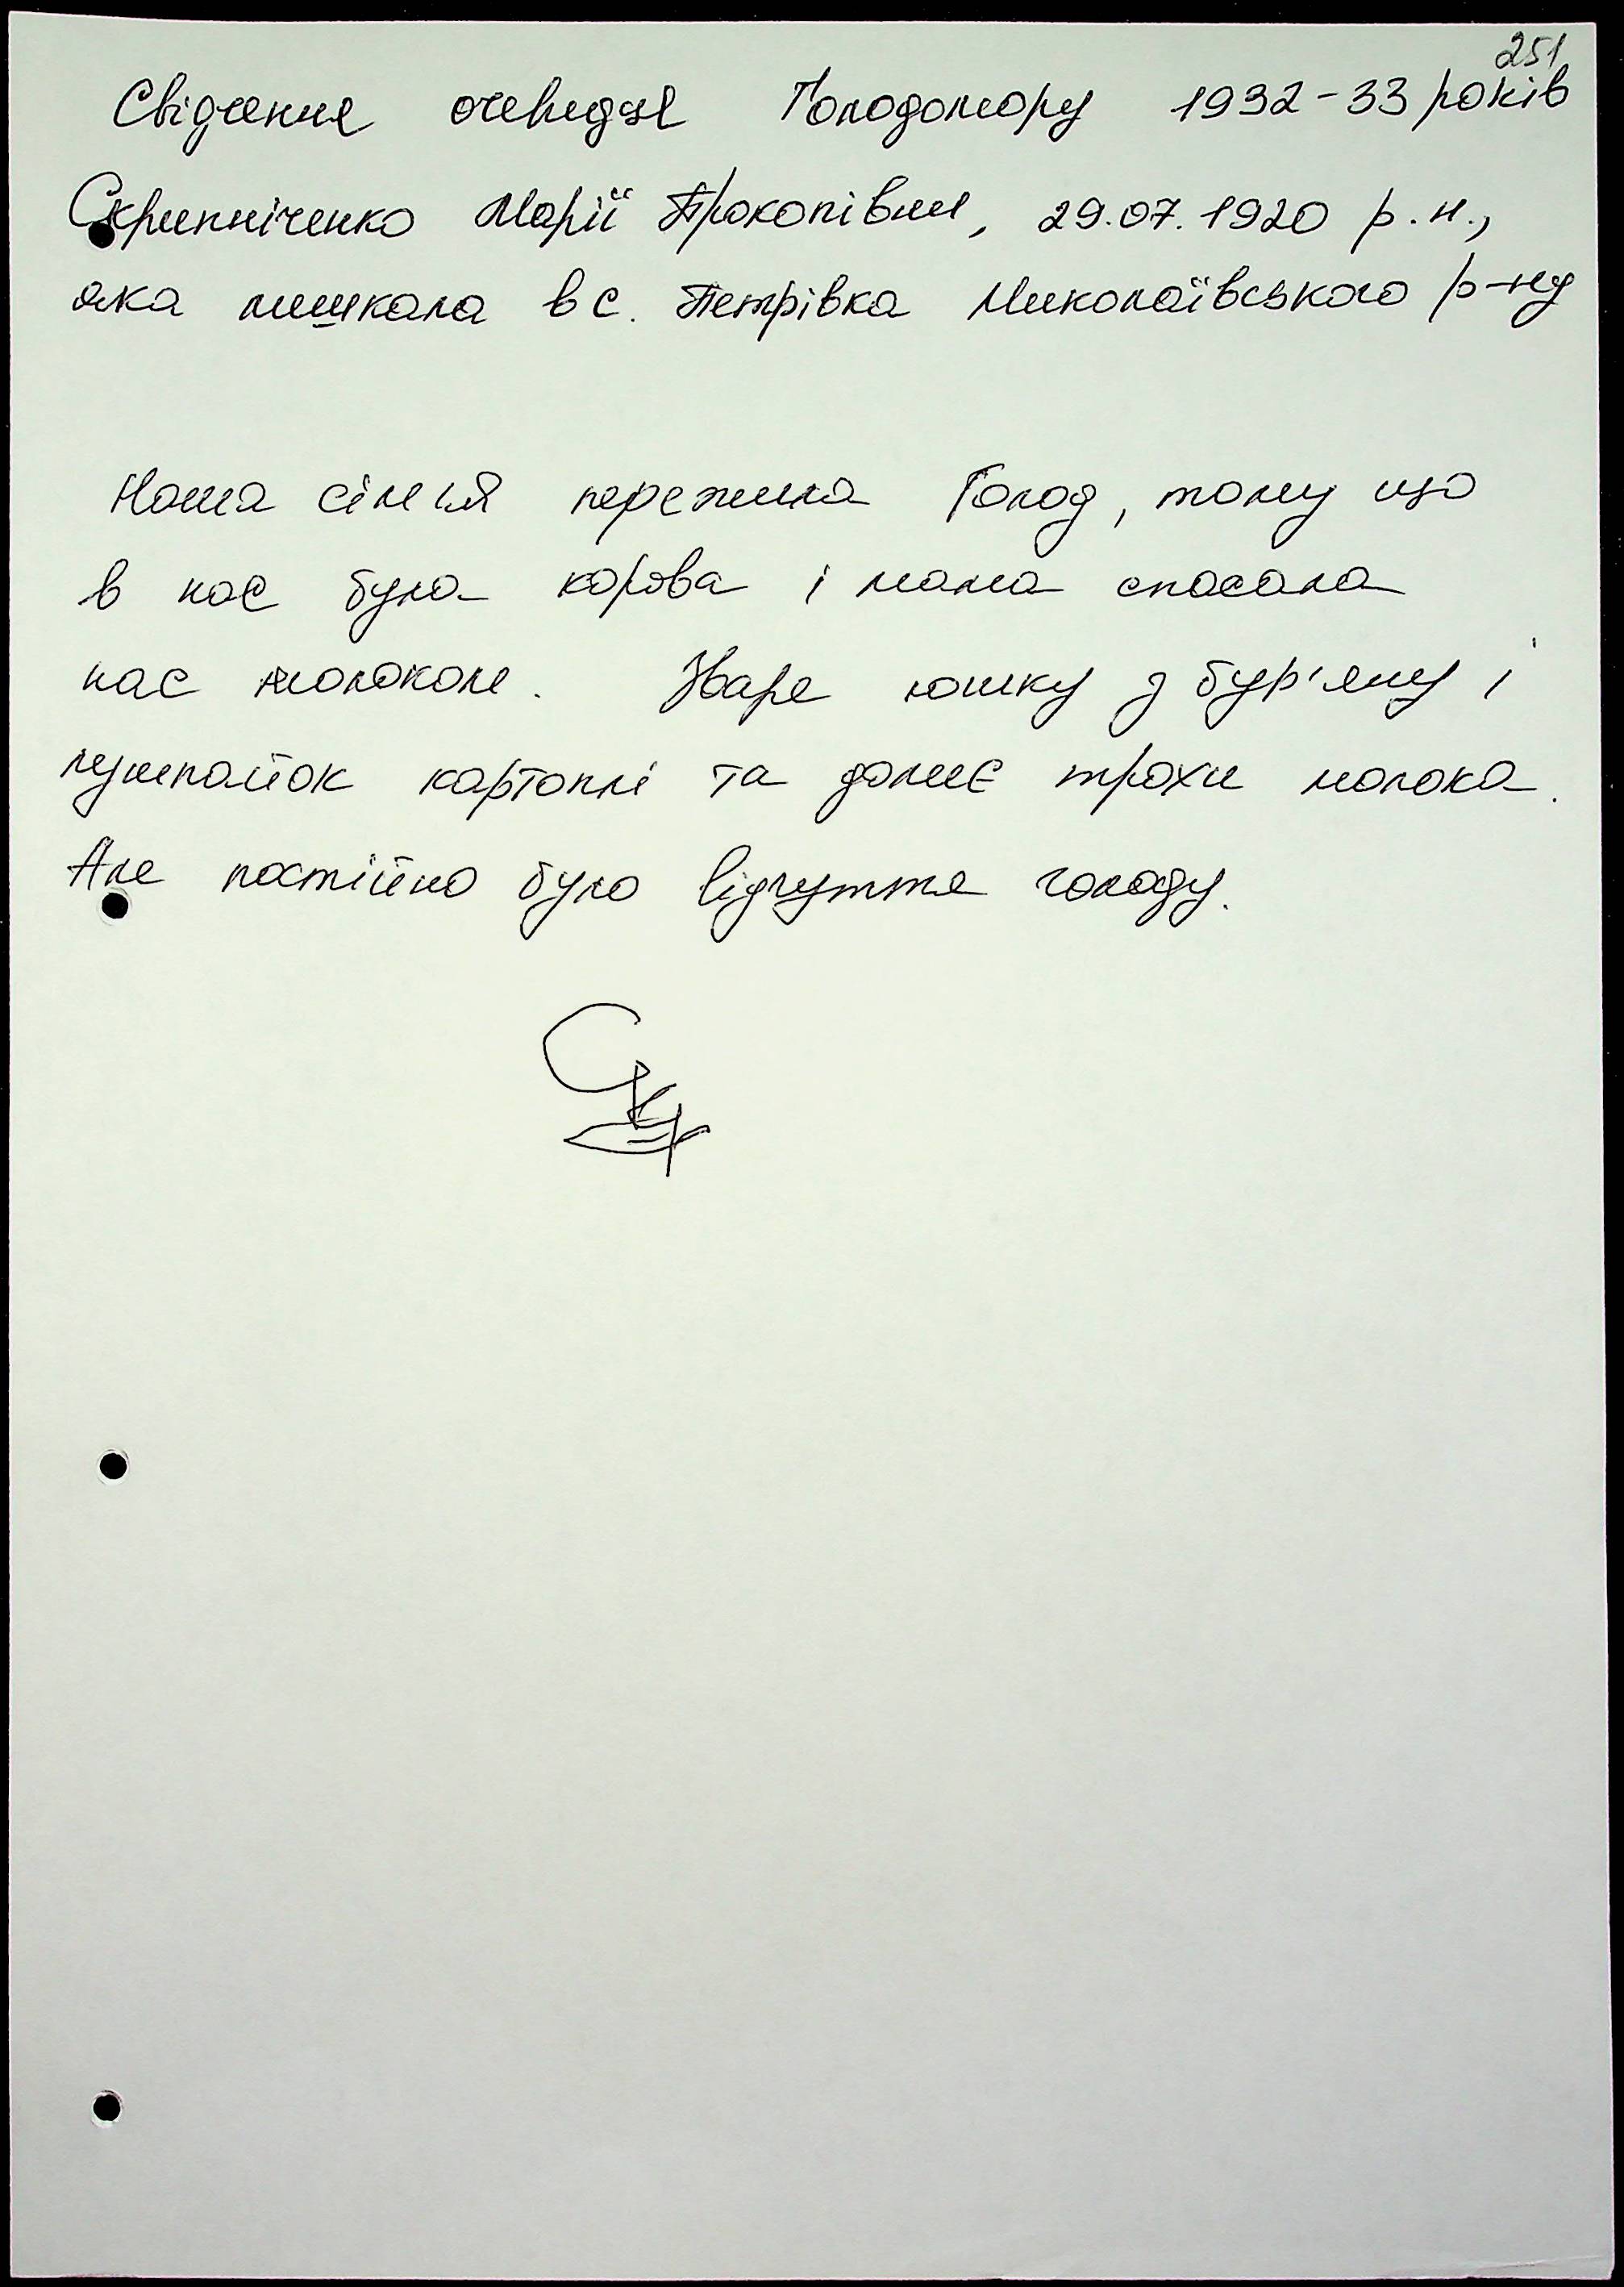 251
Свідчення очевидця Голодомору 1932-33 років
Скрипніченко Марії Прокопівни, 29.07.1920 р.н.,
яка мешкала в с. Петрівка Миколаївського р-ну
Наша сім'я пережила Голод, тому що
в нас була корова і мама спасала
нас молоком. Зваре юшку з бур'яну і
лушпайок картоплі та долиє трохи молока.
Але постійно було відчуття голоду.